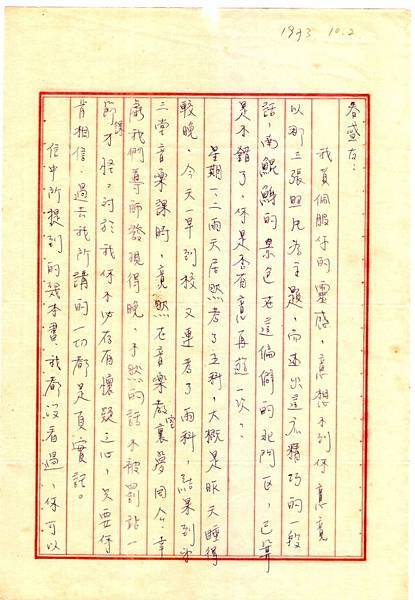 1993 10.2
春盛友：
我真佩服你的靈感，意想不到你竟竟
以那三張照片為主題，而述出這麼精巧的一般
話，南鯤鯓的景色在這偏僻的北門區，已算
是不錯了，你是否有意再遊一次？
星期一、二兩天居然考了五科，大概是昨天睡得
較晚，今天一早到校又連考了兩科，結果到第
三堂音樂課時，竟然在音樂教室裏夢周公，幸
虧我們導師發現得晚，不然的話不被罰站一
節課才怪。對於我你不必存有懷疑之心，只要你
肯相信，過去我所講的一切都是真實話。
信中所提到的幾本書，我都沒看過，你可以